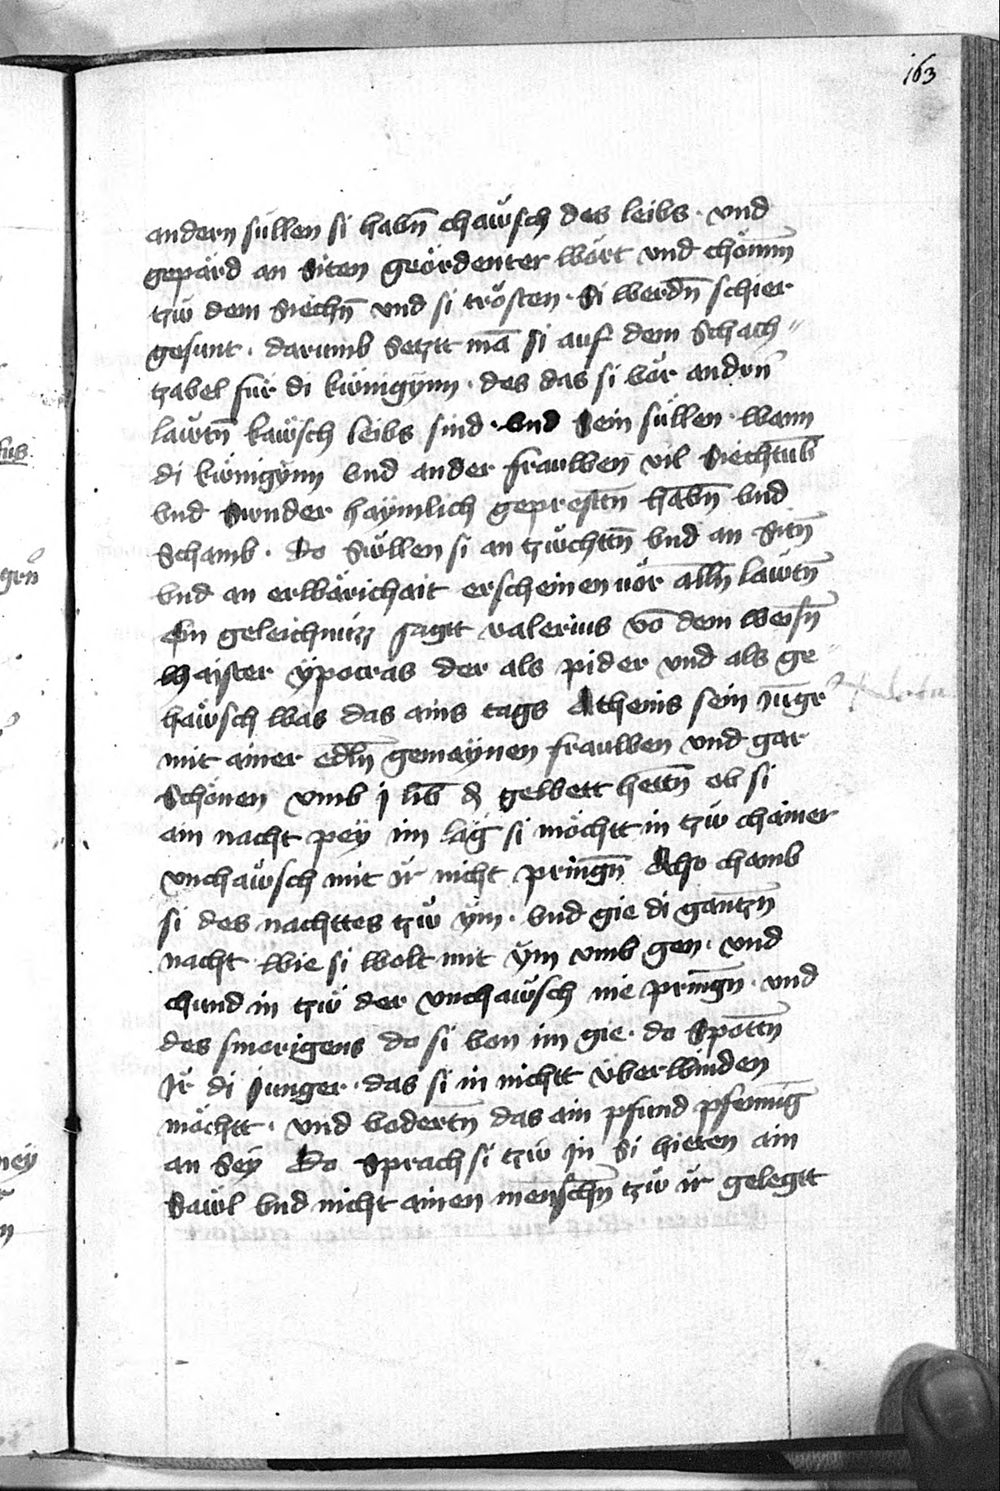 163
andern süllen si habn̄ chaẅsch des leibs · vnd
gepärd an Siten geördenter wört vnd chömm̄
tzw̆ dem Siechn̄ vnd si trösten · Si werdn̄ schier
gesunt · darumb Setztt mā si auf dem Schach〃
tzabel für di kw̆nigynn · des das si vör andrn̄
lawtn̄ kaẅsch leibs sind · vnd Sein süllen · wann
di kw̆nigynn vnd ander frauwen vil Siechtūb
vnd Sunder haÿmlich geprestn̄ habn̄ vnd
Schamb · Do Sw̆llen si an tzw̆chttn̄ vnd an Sitn̄
vnd an erwärichait erscheinen vör alln̄ lawtn̄
Ein geleichnüzz sagtt valerius vō dem weisn̄
Maister ÿpocras der als pider vnd als ge〃
haẅsch was das ains tags Athenis sein Jūgr
mit ainer edln̄ gemaÿnen frauwen vnd gar
Schönen vmb j lib ₰ gewett hettn̄ ob si
ain nacht peÿ im läg si möchtt in tzw̆ chainer
vnchaẅsch mit ir nicht pringn̄ Also chamb
si des nachttes tzw̆ ÿm · vnd gie di gantzn̄
nacht wie si wolt mit ÿm vmb gen · vnd
chund in tzw̆ der vnchaẅsch nie pringn̄ · vnd
des smorigens do si von im gie · do Spottn̄
Ir di Junger · das si in nichtt überwinden
möchtt · vnd vodertn̄ das ain pfund pfennīg
an Seÿ Do Sprach si tzw̆ In Si hieten ain
Sawl vnd nicht ainen menschn̄ tzw̆ ir gelegtt